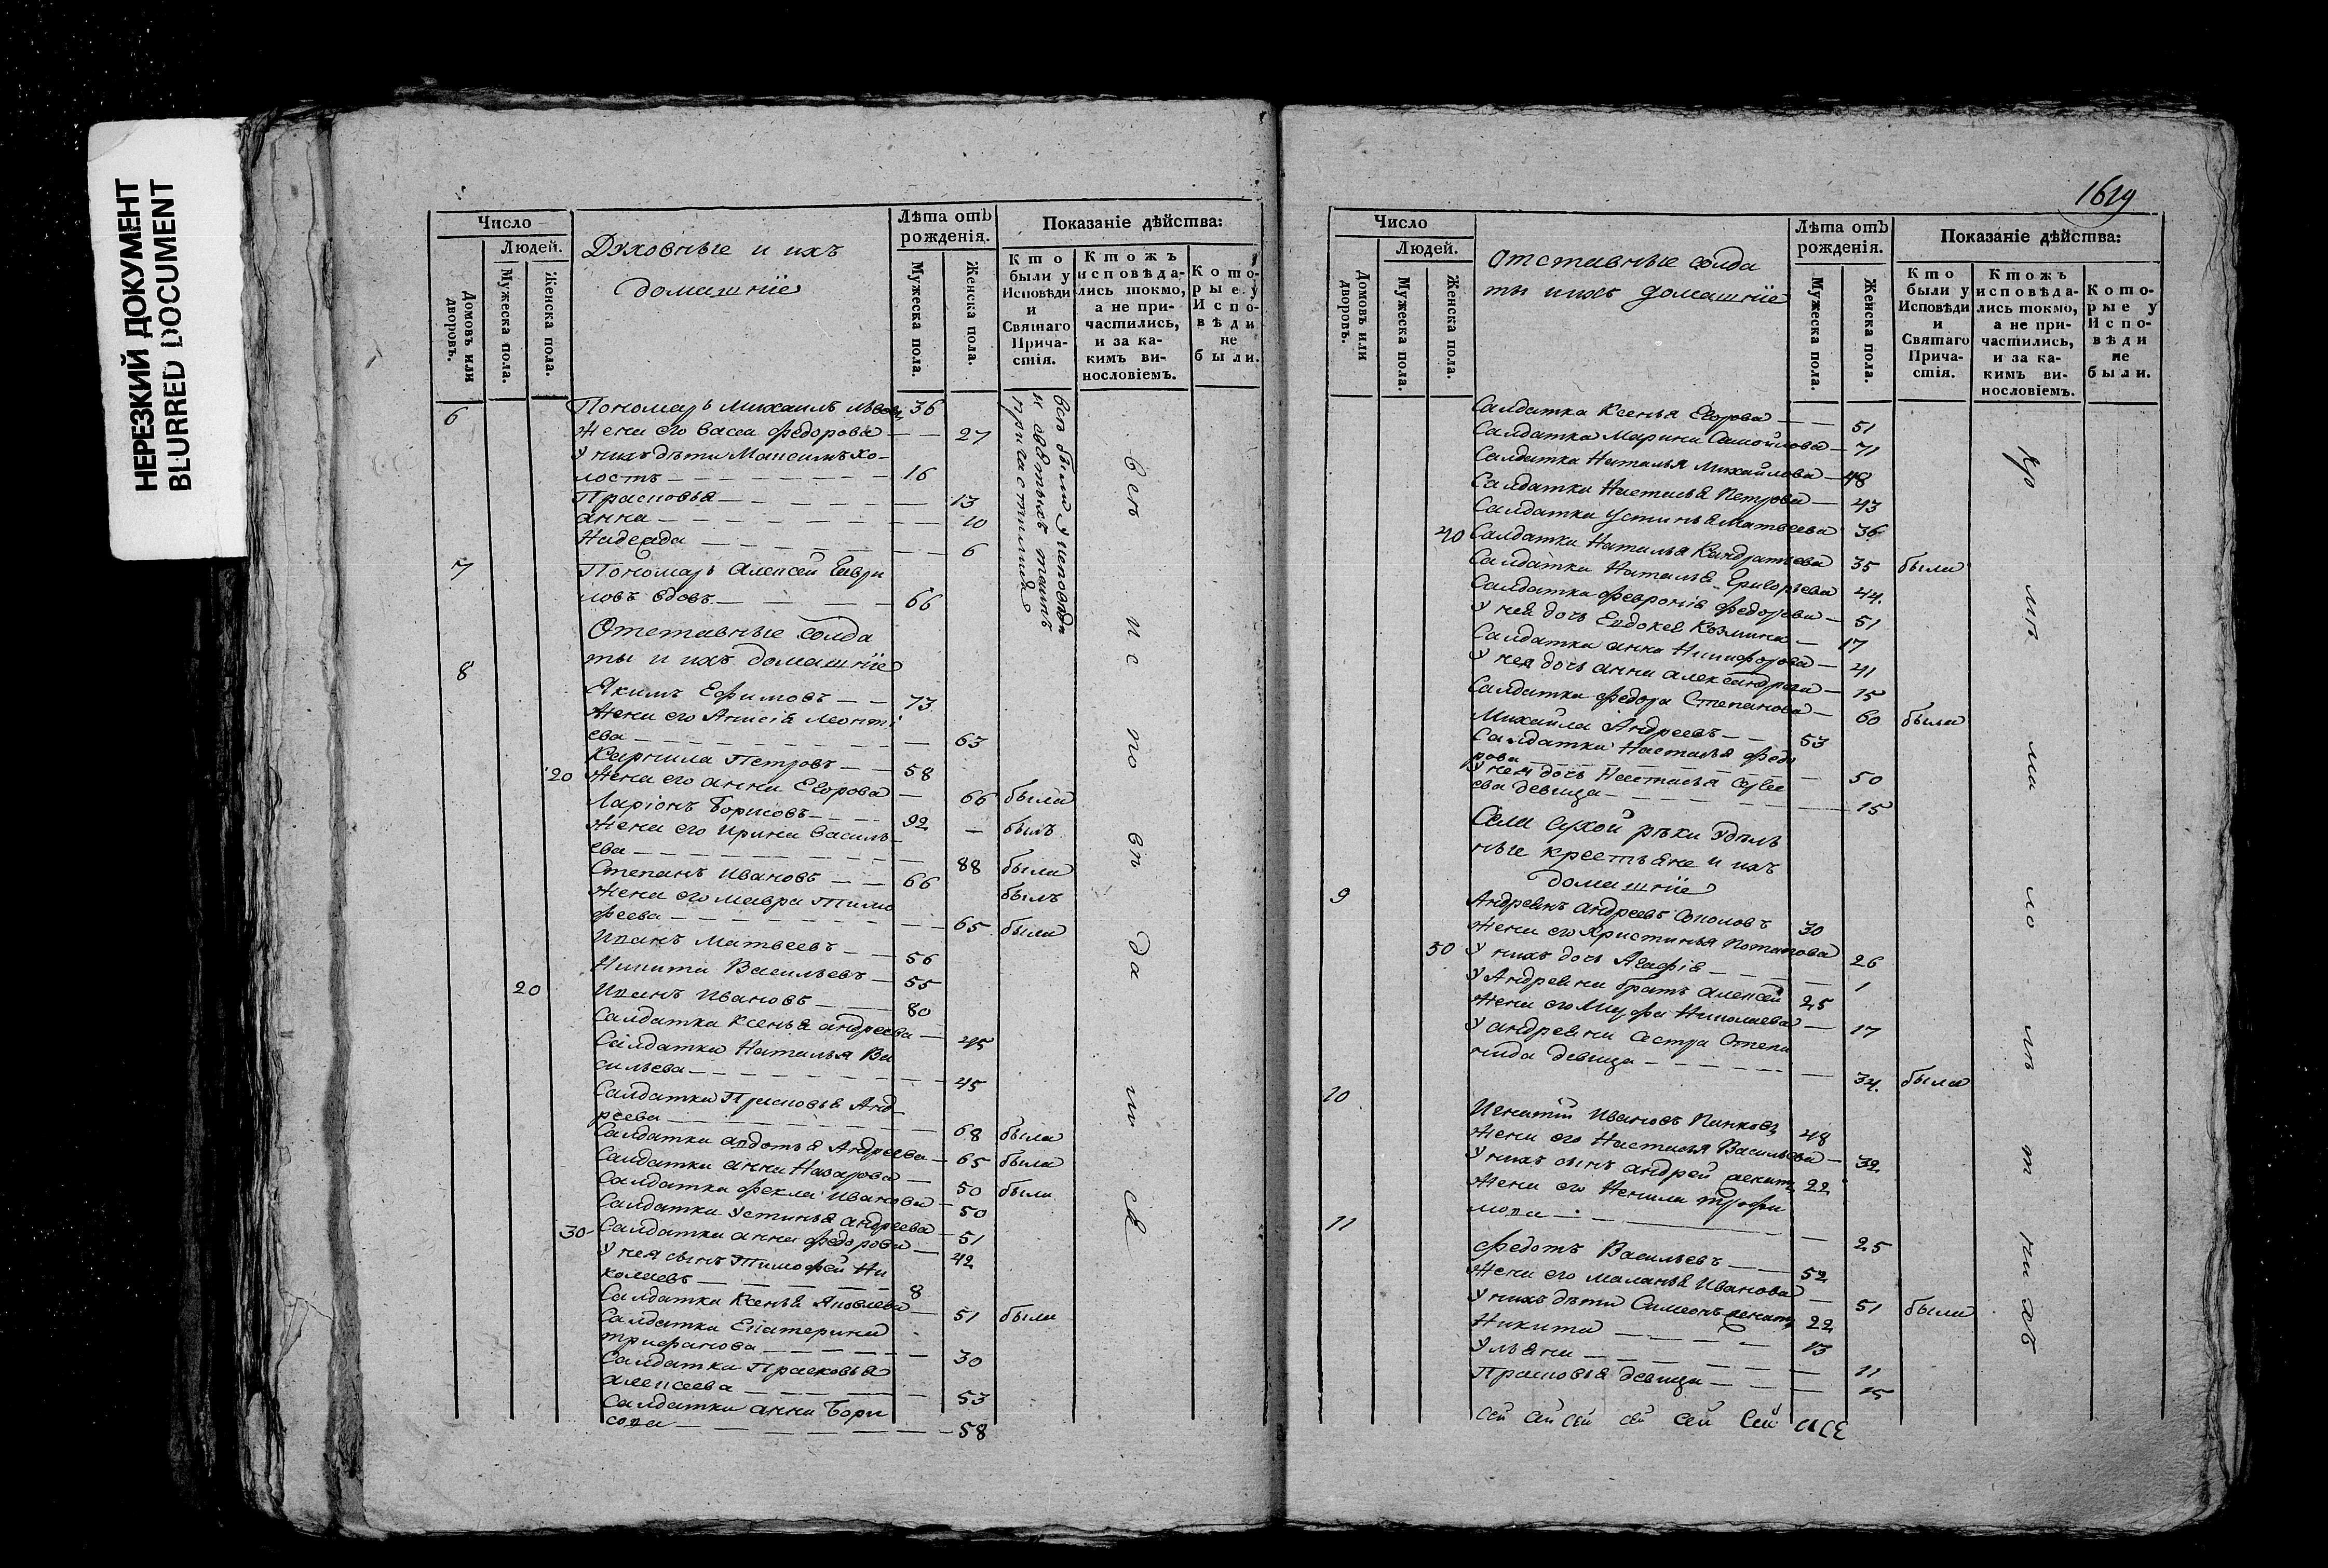 НЕРЕЗКИЙ ДОКУМЕНТ
BLURRED DOCUMENT
Число
Людей.
Домовъ или дворовъ.
Мужеска пола.
Женска пола.
Духовные и ихъ
домашніе
Лѣта отъ рожденія.
Мужеска пола.
Женска пола.
Показаніе дѣйства:
Кто были у Исповѣди и Святаго Прича-стія.
Ктожъ исповѣда-лись токмо, а не при-частились, и за ка-кимъ ви-нословіемъ.
Кото-рые у Испо-вѣди не были.
6 Пономарь Михаилъ 36
Жена его васса федорова — — 27
У нихъ дѣти Максимъ хо-
лостъ — 16
Прасковья — 13
анна — 10
Надежда — 6
7 Пономарь Алексей Гаври
ловъ вдовъ — 66
всѣ были у исповѣди
и святыхъ таинъ
причастились
Отставные солда
ты и ихъ домашніе
8 Якимъ Ефимовъ — — 73
Жена его Анисія Леонті
ева — 63
Карнила Петровъ — 58
20 Жена его анна Егорова — 66 была
Ларіонъ Борисовъ — 92 — былъ
Жена его Ирина василь
ева — 88 была
Степанъ Ивановъ — — 66 былъ
Жена его мавра Тимо
феева — 65 была
Иванъ Матвеевъ — 56
Никита Васильевъ — 55
20 Иванъ Ивановъ — 80
Салдатка Ксенья андреева — 45
Салдатка Наталья Ва
сильева — 45
Салдатка Прасковья Анд-
реева — 68 была
Салдатка авдотья Андреева — 65 была
Салдатка анна Назарова — 50 была
Салдатка фекла Иванова — 50
Салдатка Устинья андреева — 51
30 Салдатка анна федорова — 42
У нея сынъ Тимофей Ни
колаевъ — 8
Салдатка Ксенья Яковлева — 51 была
Салдатка Екатерина
трифанова — 30
Салдатка Прасковья
алексеева — 53
Салдатка анна Бори
сова — 58
всѣ исповѣда
1619
Число
Людей.
Домовъ или дворовъ.
Мужеска пола.
Женска пола.
Отставные солда
ты ихъ домашніе
Лѣта отъ рожденія.
Мужеска пола.
Женска пола.
Показаніе дѣйства:
Кто были у Исповѣди и Святаго Прича-стія.
Ктожъ исповѣда-лись токмо, а не при-частились, и за ка-кимъ ви-нословіемъ.
Кото-рые у Испо-вѣди не были.
Салдатка Ксенья Егорова — — 51
Салдатка Марина Самойлова — 71
Салдатка Наталья Михайлова — 48
Салдатка Настасья Петрова — 43
Салдатка Устинья Матвеева 36
40 Салдатка Наталья Кандратьева 35 была
Салдатка Наталья Григорьева 44.
Салдатка февронія федорова — 51
У ней дочь Евдокея Козмина — 17
Салдатка анна Никифорова — 41
У нея дочь анна александрова — 15
Салдатка федора Степанова — 60 была
Михайла Андреевъ — — 53
Салдатка Настасья федо
рова — 50
У нея дочь Настасья
ева девица — 15
Села Сухой рѣки Удѣль
ные крестьяне и ихъ
домашніе
9 Андреянъ андреевъ Соколовъ 30
Жена его Христинья Потапова 26
50 У нихъ дочь Агафія — 1
У Андреяна братъ алексей 25
Жена его Николаева — 17
У андреяна сестра Степа
нида девица — 34. была
10 Игнатій Ивановъ 48
Жена его Настасья Васильева — 32
У нихъ сынъ андрей 22
Жена его Ненила трофи
мова — 25
11 федотъ Васильевъ — — 52
Жена его маланья Иванова — 51 была
У нихъ дѣти Симеонъ 22
Никита — 13
Ульяна — 11
Прасковья девица — 15